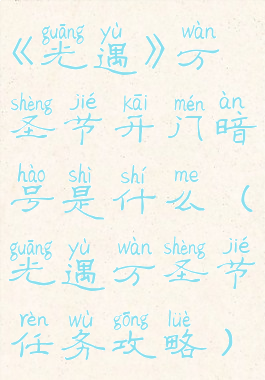 guāng yù wàn
《光遇》万
shèng jié kāi mén àn
圣节开门暗
hào shì shí me
号是什么（
guāng yù wàn shèng jié
光遇万圣节
rèn wù gōng lüè
任务攻略）